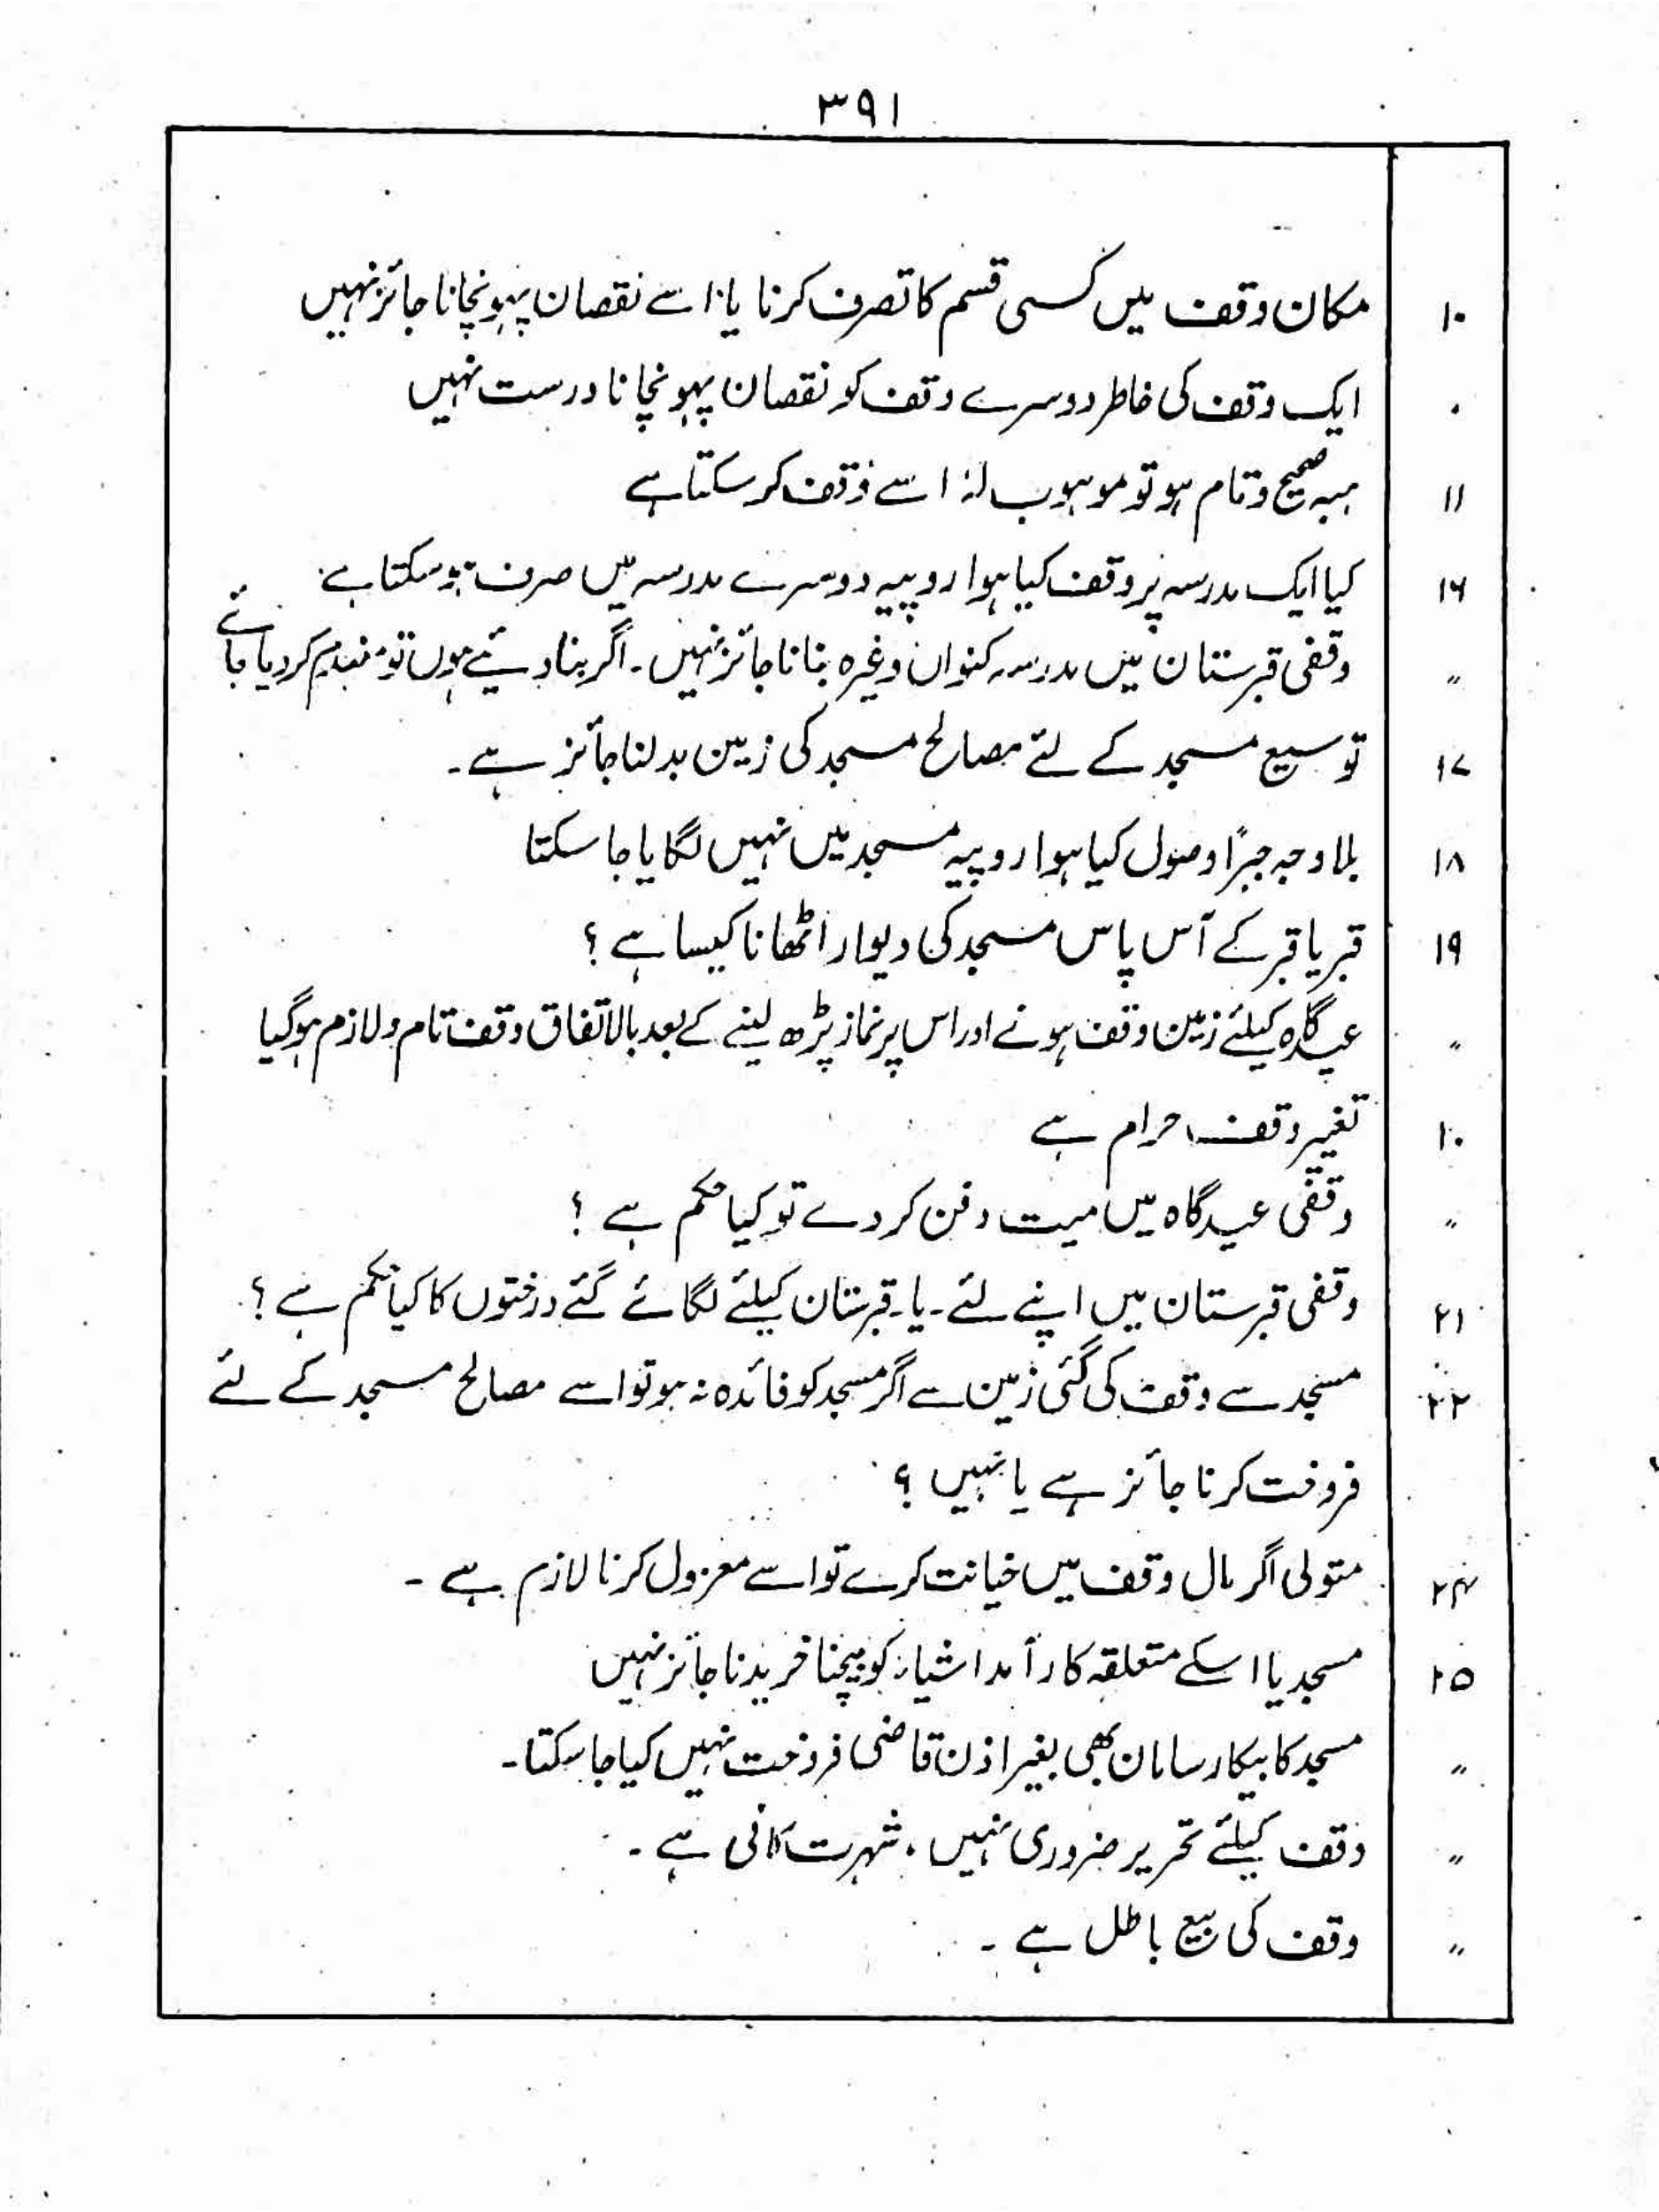 ۳۹۱
۱۰ مکان وقف میں کسی قسم کا تصرف کرنا یا اسے نقصان پہونچانا جائز نہیں
۰ ایک وقف کی خاطر دوسرے وقف کو نقصان پہونچانا درست نہیں
۱۱ ہبہ صحیح وتام ہو تو موہوب لہٗ اسے وقف کر سکتا ہے
۱۶ کیا ایک مدرسہ پر وقف کیا ہوا روپیہ دوسرے مدرسہ میں صرف ہو سکتا ہے
〃 وقفی قبرستان میں مدرسہ کنواں وغیرہ بنانا جائز نہیں ۔ اگر بنا دیئے ہوں تو منہدم کر دیا جائے
۱۷ توسیع مسجد کے لئے مصالح مسجد کی زمین بدلنا جائز ہے ۔
۱۸ بلا وجہ جبرًا وصول کیا ہوا روپیہ مسجد میں نہیں لگایا جا سکتا
۱۹ قبر یا قبر کے آس پاس مسجد کی دیوار اٹھانا کیسا ہے ؟
〃 عیدگاہ کیلئے زمین وقف ہونے اور اس پر نماز پڑھ لینے کے بعد بالاتفاق وقف تام ولازم ہوگیا
۱۰ تغییر وقف حرام ہے
〃 وقفی عیدگاہ میں میت دفن کر دے تو کیا حکم ہے ؟
۲۱ وقفی قبرستان میں اپنے لئے ۔ یا ۔ قبرستان کیلئے لگائے گئے درختوں کا کیا حکم ہے ؟
۲۲ مسجد سے وقف کی گئی زمین سے اگر مسجد کو فائدہ نہ ہو تو اسے مصالح مسجد کے لئے
فروخت کرنا جائز ہے یا نہیں ؟
۲۴ متولی اگر مال وقف میں خیانت کرے تو اسے معزول کرنا لازم ہے ۔
۲۵ مسجد یا اسکے متعلقہ کار آمد اشیاء کو بیچنا خریدنا جائز نہیں
〃 مسجد کا بیکار سامان بھی بغیر اذن قاضی فروخت نہیں کیا جا سکتا ۔
〃 وقف کیلئے تحریر ضروری نہیں ، شہرت کافی ہے ۔
〃 وقف کی بیع باطل ہے ۔